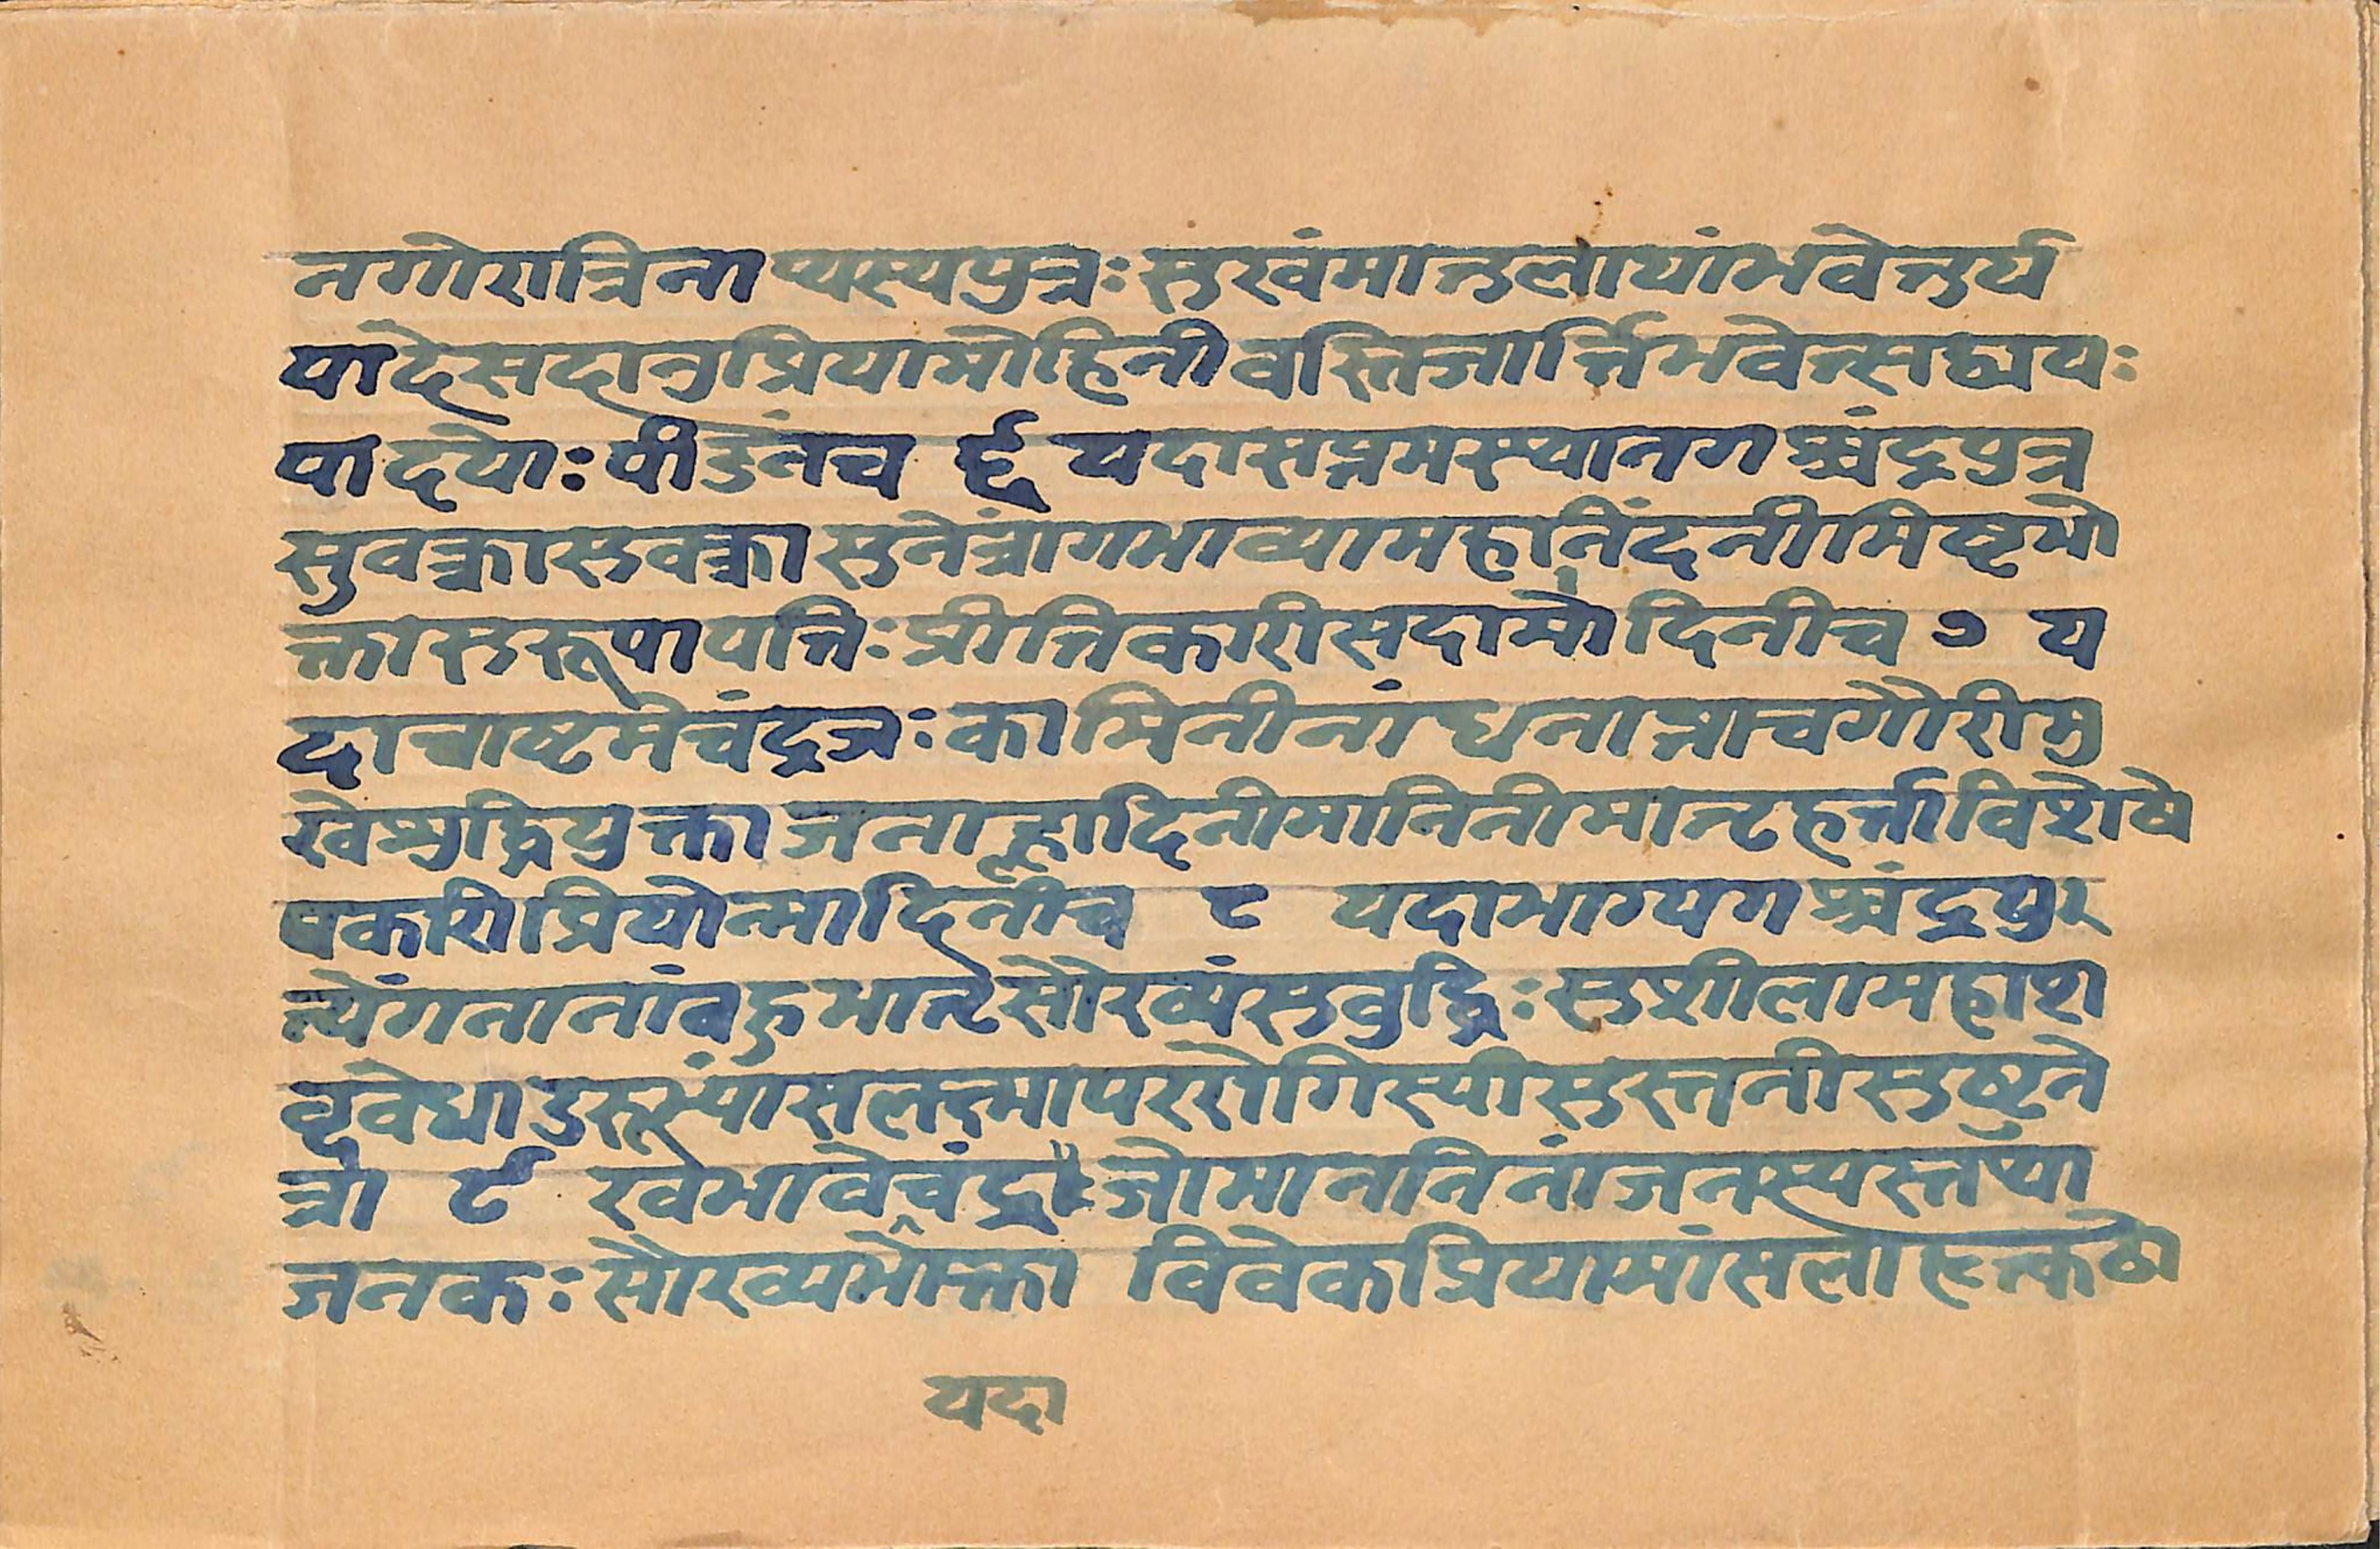 नगोरात्रिनाप्यस्यपुत्रः सुखंमातुलायांभवेत्तुर्य
पादेसदानुप्रियामोहिनीवस्तिजार्त्तिभवेन्सछ्यपः
पादयोः पीडनंच ६ यदासप्तमस्थानगश्चंद्रपुत्र
सुवक्त्रासुवक्त्रासुनेत्रांगभाव्यामहानिंदनीमिष्टभो
क्तासुरूपापतिः प्रीतिकारीसदामोदिनीच ७ य
दाचाष्टमेचंद्रजः कामिनीनांधनान्नाचगौरीमु
खेशुद्धियुक्ताजनाह्लादिनीमानिनीमान्टहर्त्तीविशेषे
षकारीप्रियोन्मादिनीच ८ यदाभाग्यगश्चंद्रपुर
त्र्येंगनानांबहुमान्टसौख्यंसुबुद्धिः सुशीलामहाश
वृवेधाडरूस्यांसलक्ष्मापररोगिस्पीसुस्तनीसुष्टने
त्रा ९ खेभावेचंद्रजोमाननिनांजनस्यस्तथा
जनकः सौख्यभोक्ता विवेकप्रियामांसलाहृत्कठो
यदा